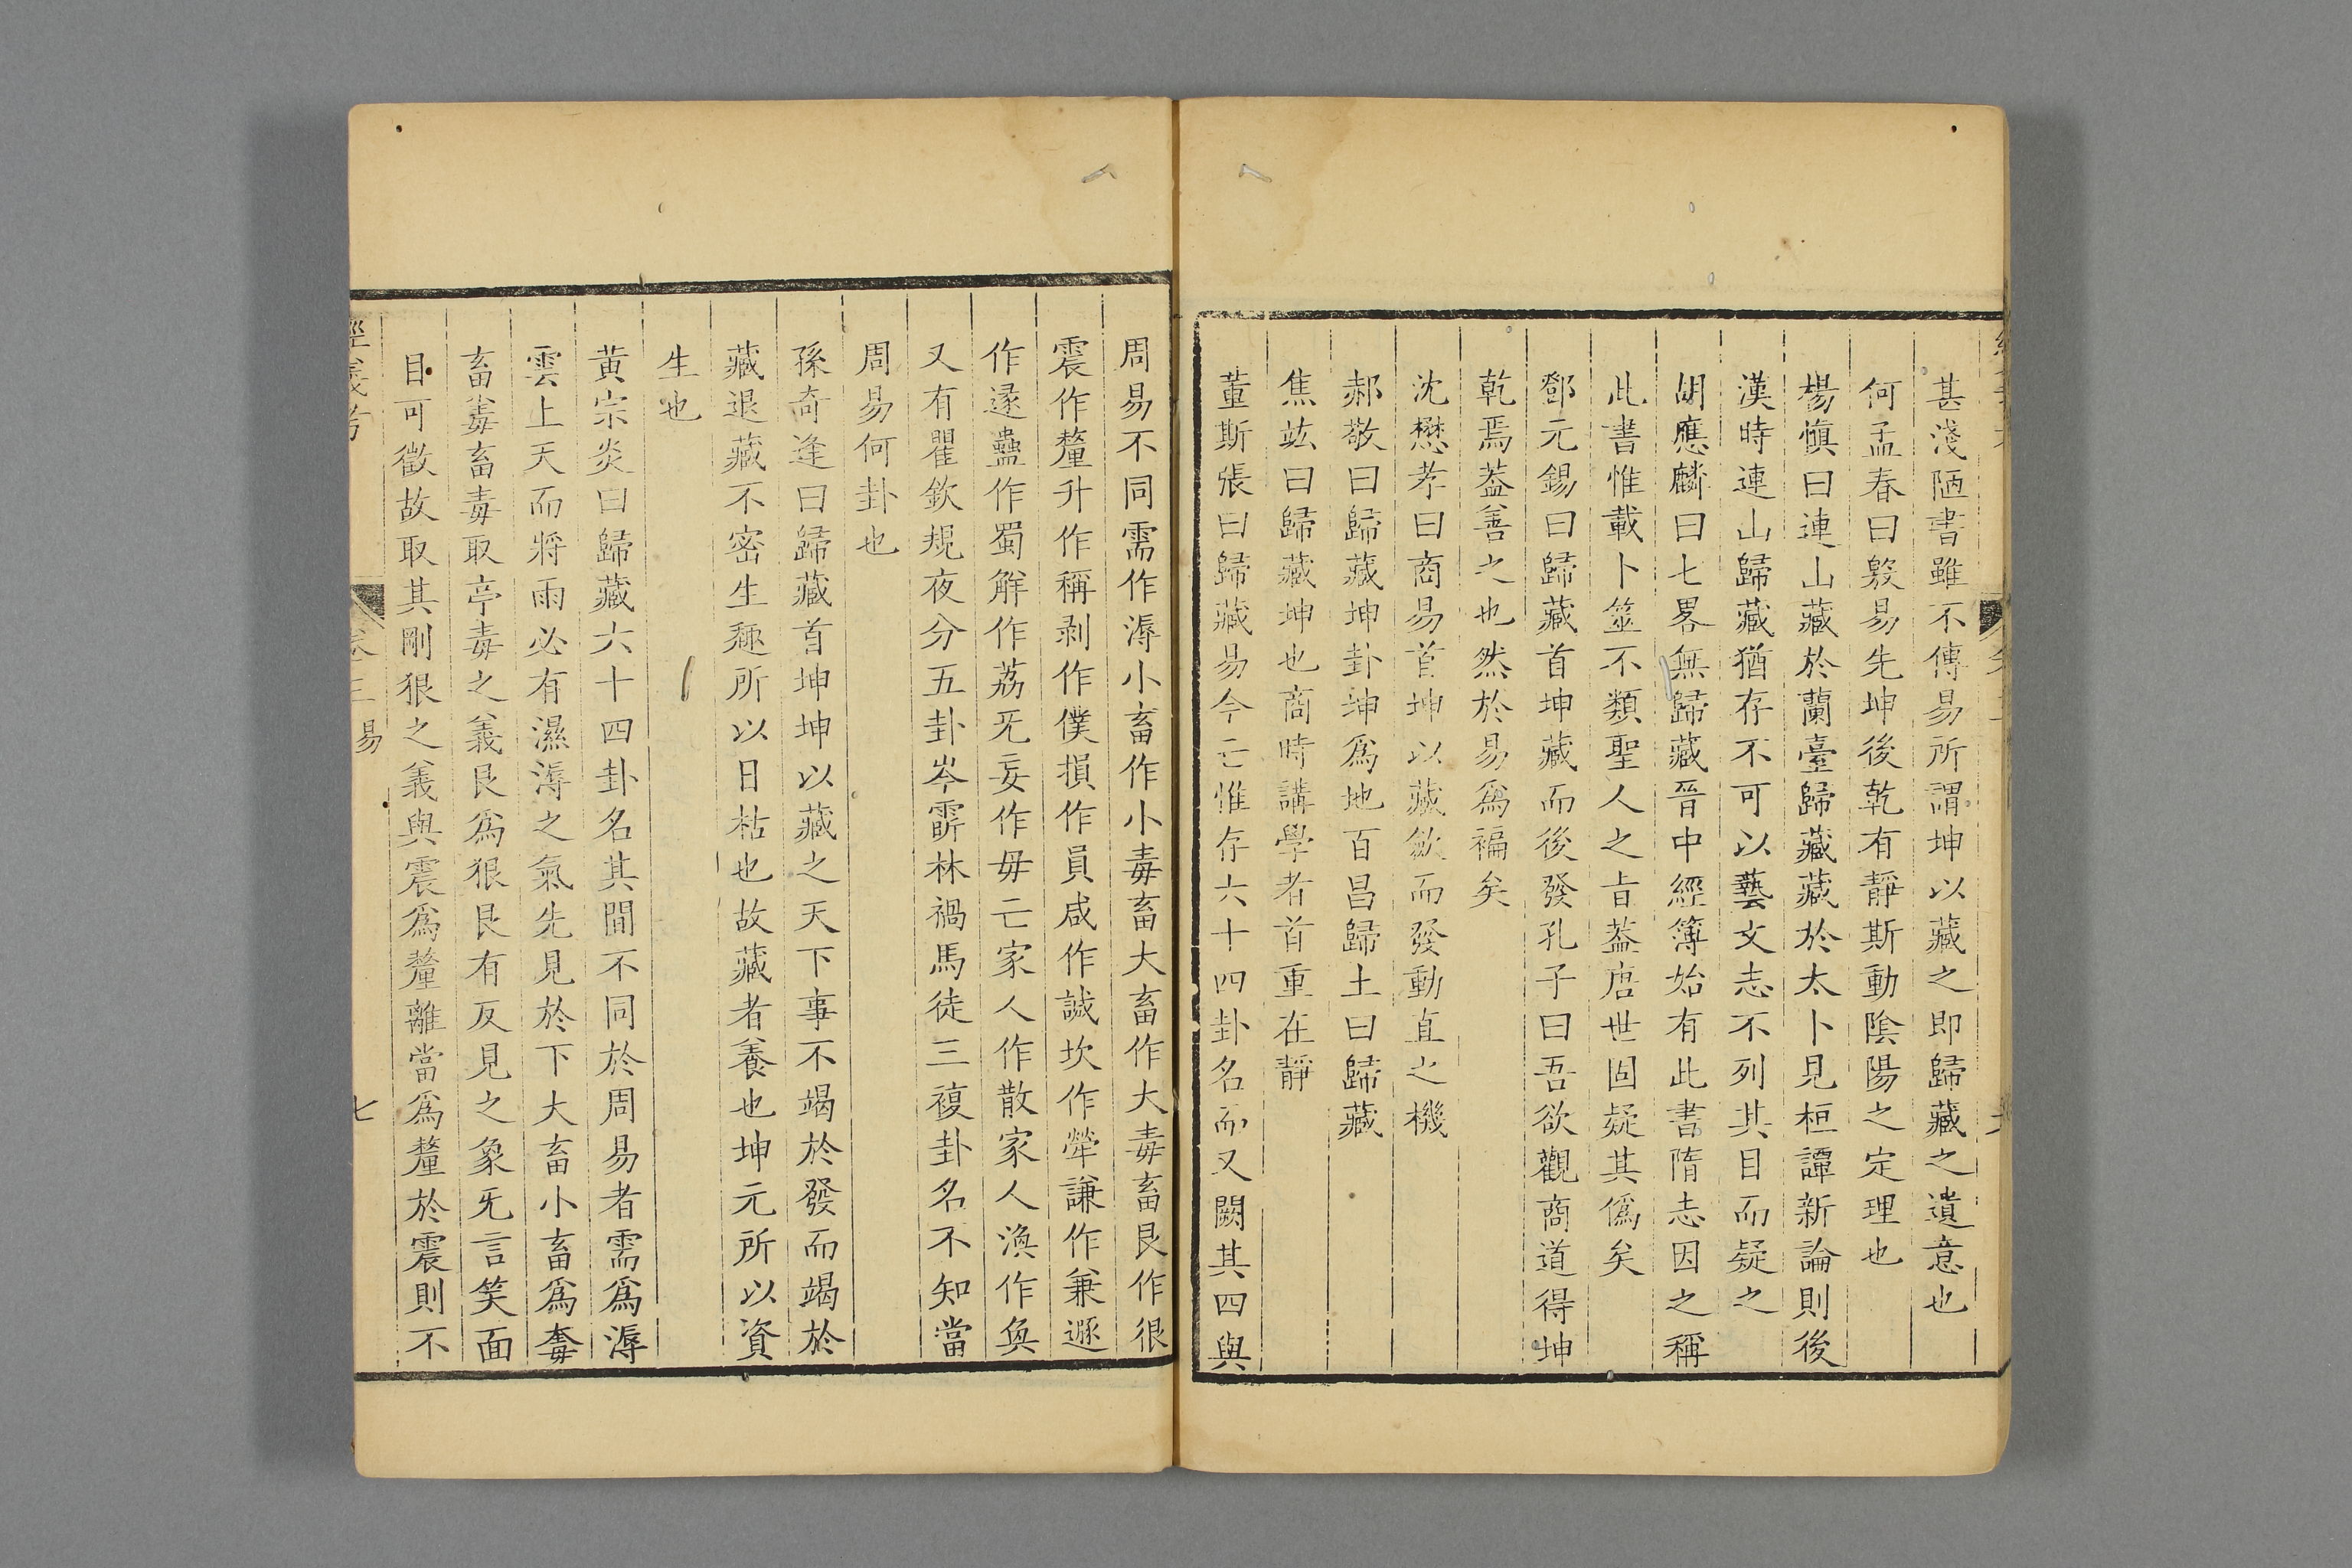 甚淺陋書雖不傳易所謂坤以藏之即歸藏之遺意也
何孟春曰殷易先坤後乾有靜斯動陰陽之定理也
楊慎曰連山藏於蘭臺歸藏藏於太卜見桓譚新論則後
漢時連山歸藏猶存不可以藝文志不列其目而疑之
胡應麟曰七畧無歸藏晉中經簿始有此書隋志因之稱
此書惟載卜筮不類聖人之旨葢唐世固疑其偽矣
鄧元錫曰歸藏首坤藏而後發孔子曰吾欲觀商道得坤
乾焉葢善之也然於易爲褊矣
沈懋孝曰商易首坤以藏歛而發動直之機
郝敬曰歸藏坤卦坤爲地百昌歸土曰歸藏
焦竑曰歸藏坤也商時講學者首重在靜
董斯張曰歸藏易今亡惟存六十四卦名而又闕其四與
周易不同需作溽小畜作小毒畜大畜作大毒畜艮作很
震作釐升作稱剥作僕損作員咸作諴坎作犖謙作兼遯
作逯蠱作蜀解作荔无妄作毋亡家人作散家人渙作奐
又有瞿欽規夜分五卦岑霨林禍馬徒三複卦名不知當
周易何卦也
孫奇逢曰歸藏首坤坤以藏之天下事不竭於發而竭於
藏退藏不密生趣所以日枯也故藏者養也坤元所以資
生也
黄宗炎曰歸藏六十四卦名其間不同於周易者需爲溽
雲上天而將雨必有濕溽之氣先見於下大畜小畜爲
畜毒畜毒取亭毒之義艮爲狠艮有反見之象旡言笑面
目可徵故取其剛狠之義與震爲釐離當爲釐於震則不
經義考 卷三 易 七